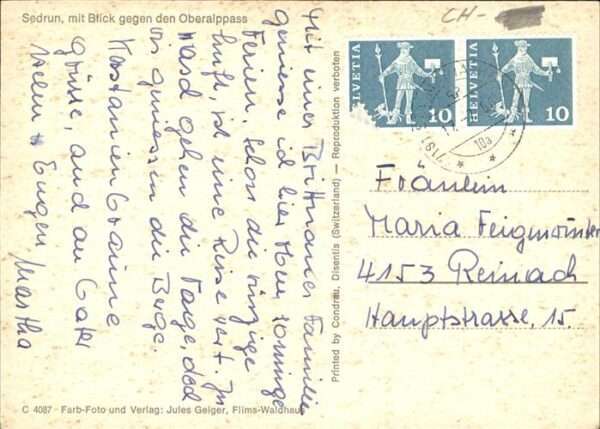 Sedrun, mit Blick gegen den Oberalppass
Mit einer Brittnauer Familie
geniesse ich hier oben sonnige
Ferien. Schon die einzige
Luft, ist eine Reise wert. Im
Nu gehen die Tage, doch
es geniessen die Berge
grüsse, auch an Vater
Helen & Eugen Martha
C 4087 - Farb-Foto und Verlag: Jules Geiger, Flims-Waldhaus
Printed by Condrau, Disentis (Switzerland) — Reproduktion verboten
CH-
HELVETIA 10
HELVETIA 10
Fräulein
Maria Feigenwinter
4153 Reinach
Hauptstrasse, 15.